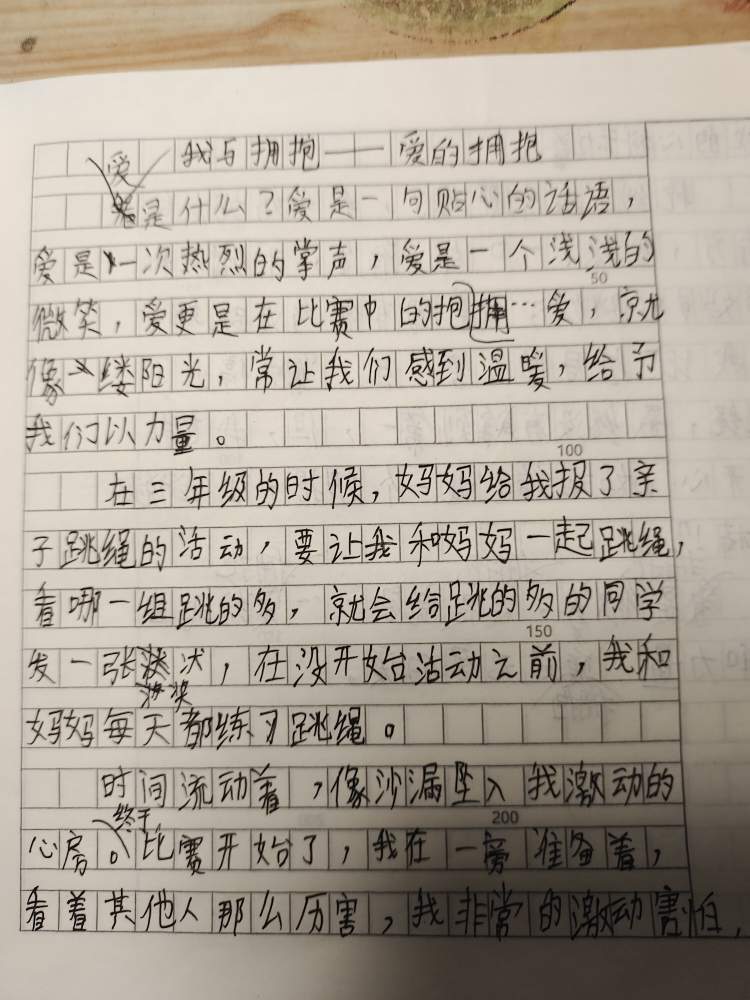 我与拥抱——爱的拥抱
爱
是什么？爱是一句贴心的话语，
爱是一次热烈的掌声，爱是一个浅浅的
50
微笑，爱更是在比赛中的抱拥…爱，就
像一缕阳光，常让我们感到温暖，给予
我们以力量。
100
在三年级的时候，妈妈给我报了亲
子跳绳的活动，要让我和妈妈一起跳绳，
看哪一组跳的多，就会给跳的多的同学
150
发一张，在没开始活动之前，我和
妈妈每天都练习跳绳。
时间流动着，像沙漏坠入我激动的
终于，
200
心房。比赛开始了，我在一旁准备着，
看着其他人那么厉害，我非常的激动害怕，